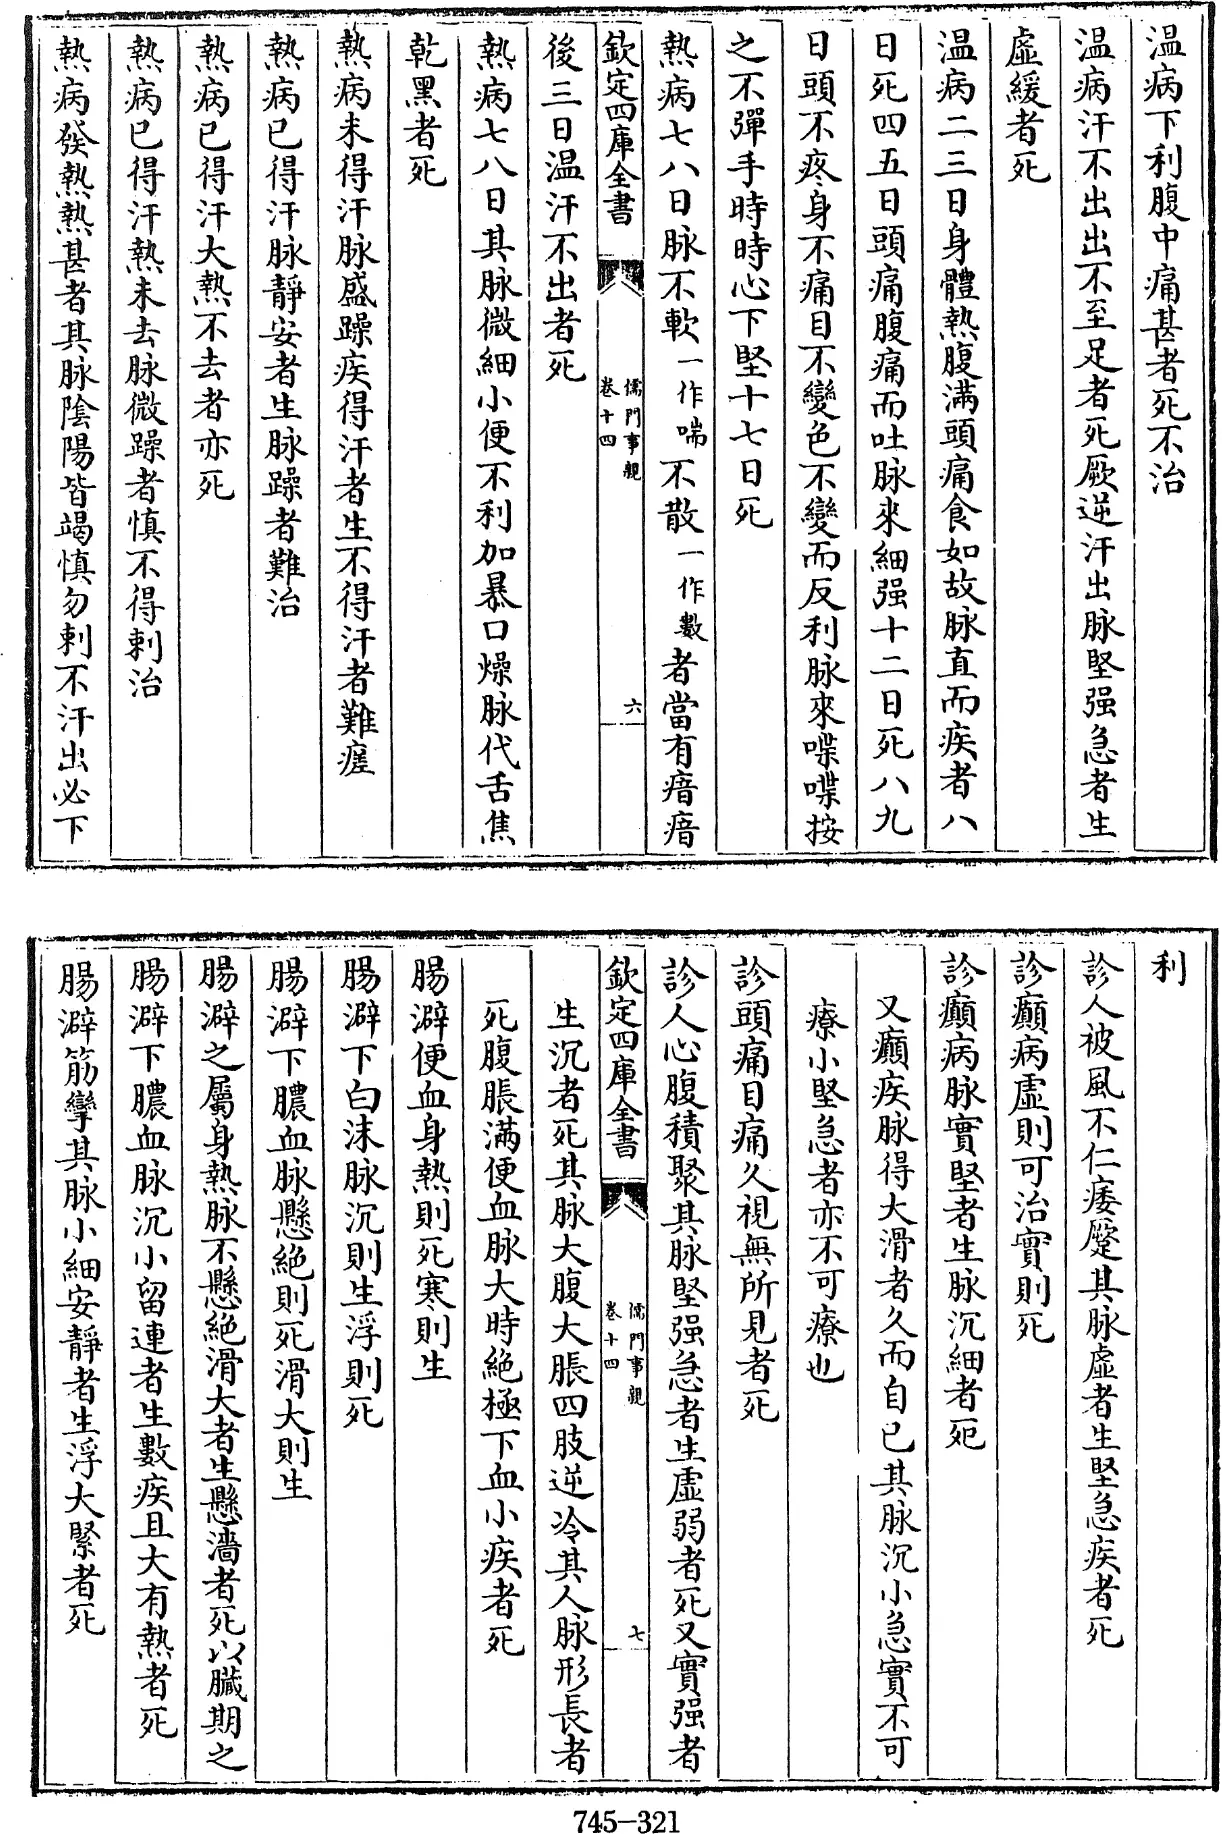 温病下利腹中痛甚者死不治
温病汗不出出不至足者死厥逆汗出脉堅强急者生
虚緩者死
温病二三日身體熱腹滿頭痛食如故脉直而疾者八
日死四五日頭痛腹痛而吐脉來細强十二日死八九
日頭不疼身不痛目不變色不變而反利脉來喋喋按
之不彈手時時心下堅十七日死
熱病七八日脉不軟一作喘不散一作數者當有瘖瘖
欽定四庫全書
儒門事親
卷十四
六
後三日温汗不出者死
熱病七八日其脉微細小便不利加暴口燥脉代舌焦
乾黑者死
熱病未得汗脉盛躁疾得汗者生不得汗者難瘥
熱病已得汗脉靜安者生脉躁者難治
熱病已得汗大熱不去者亦死
熱病已得汗熱未去脉微躁者慎不得刺治
熱病發熱熱甚者其脉陰陽皆竭慎勿刺不汗出必下
利
診人被風不仁痿蹷其脉虚者生堅急疾者死
診癲病虚則可治實則死
診癲病脉實堅者生脉沉細者死
又癲疾脉得大滑者久而自已其脉沉小急實不可
療小堅急者亦不可療也
診頭痛目痛久視無所見者死
診人心腹積聚其脉堅强急者生虚弱者死又實强者
欽定四庫全書
儒門事親
卷十四
七
生沉者死其脉大腹大脹四肢逆冷其人脉形長者
死腹脹滿便血脉大時絶極下血小疾者死
腸澼便血身熱則死寒則生
腸澼下白沫脉沉則生浮則死
腸澼下膿血脉懸絶則死滑大則生
腸澼之屬身熱脉不懸絶滑大者生懸濇者死以臟期之
腸澼下膿血脉沉小留連者生數疾且大有熱者死
腸澼筋攣其脉小細安靜者生浮大緊者死
745-321